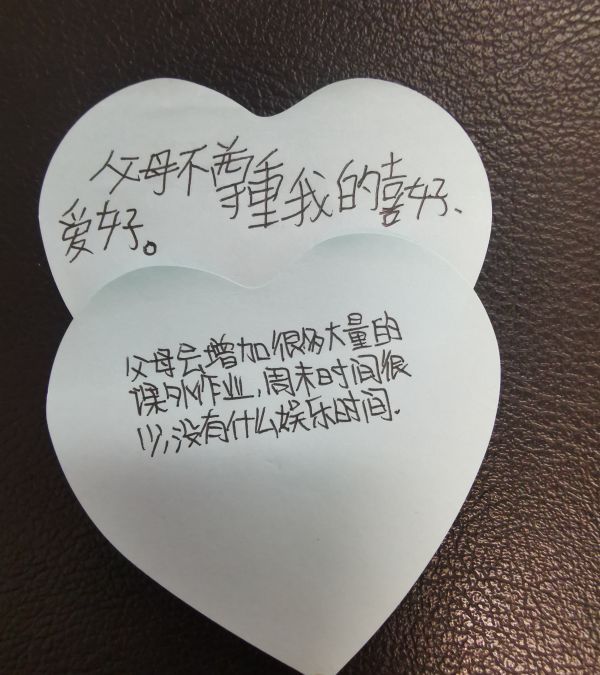 父母不尊重我的喜好、
爱好。
父母会增加很多大量的
课外作业,周末时间很
少,没有什么娱乐时间.